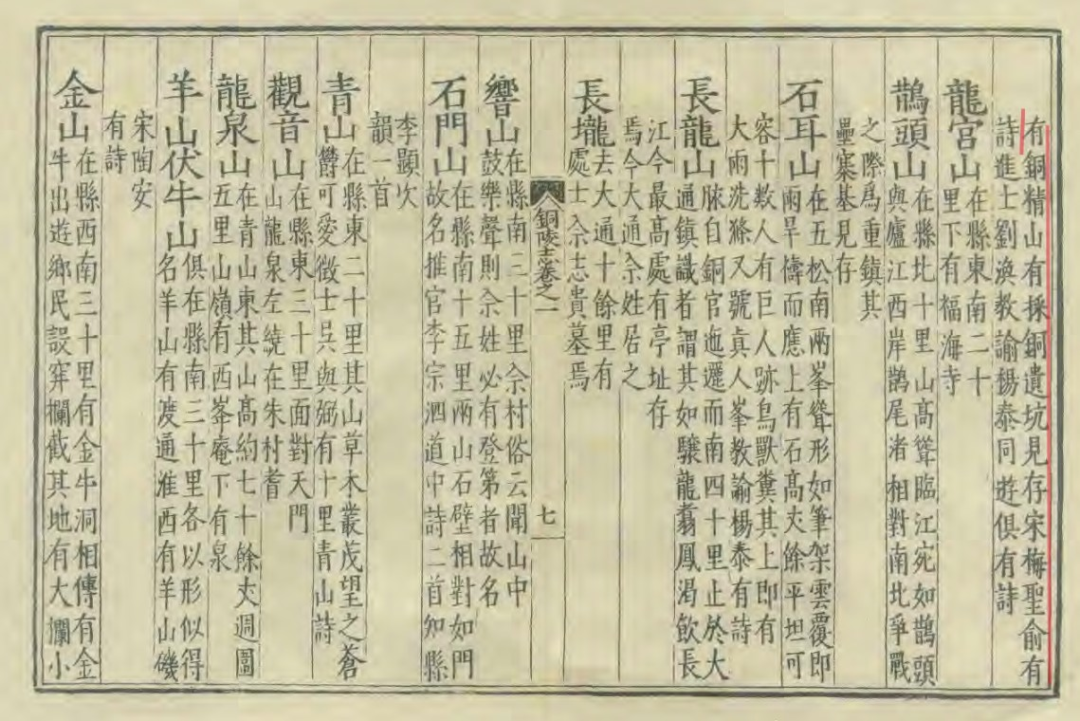 有銅精山有採銅遺坑見存宋梅聖俞有
詩進士劉渙教諭楊泰同遊俱有詩
龍宮山在縣東南二十
里下有福海寺
鵲頭山在縣北十里山高聳臨江宛如鵲頭
與廬江西岸鵲尾渚相對南北爭戰
之際爲重鎮其
壘寨基見存
石耳山在五松南兩峯聳形如筆架雲覆即
雨旱禱而應上有石高丈餘平坦可
容十數人有巨人跡鳥獸糞其上即有
大雨洗滌又號真人峯教諭楊泰有詩
長龍山脉自銅官迤邐而南四十里止於大
通鎮識者謂其如驤龍翥鳳渴飲長
江今最高處有亭址存
焉今大通佘姓居之
長壠去大通十餘里有
處士佘志貴墓焉
銅陵志卷之一
七
響山在縣南三十里佘村俗云聞山中
鼓樂聲則佘姓必有登第者故名
石門山在縣南十五里兩山石壁相對如門
故名推官李宗泗道中詩二首知縣
李顯次
韻一首
青山在縣東二十里其山草木叢茂望之蒼
欝可愛徵士吳與弼有十里青山詩
觀音山在縣東三十里面對天門
山龍泉左繞在朱村耆
龍泉山在青山東其山高約七十餘丈週圍
五里山嶺有西峯庵下有泉
羊山伏牛山俱在縣南三十里各以形似得
名羊山有渡通淮西有羊山磯
宋陶安
有詩
金山在縣西南三十里有金牛洞相傳有金
牛出遊鄉民設穽欄截其地有大欄小